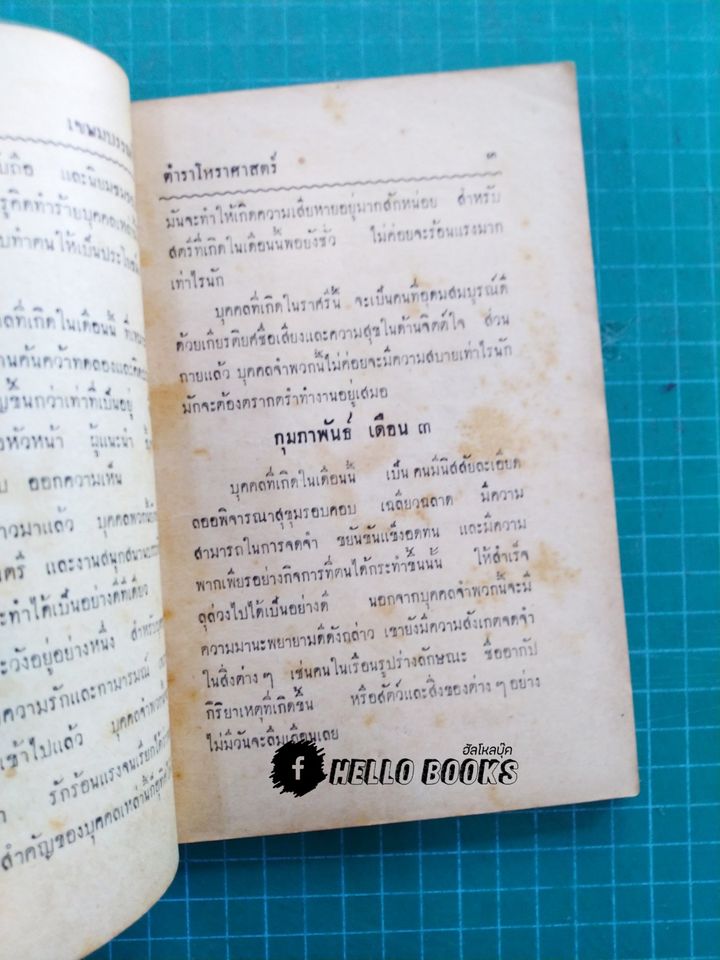 เขษมบรรณ
และนิยมชมชอ
รุคิดทำร้ายบุคคลเหล่านี้
บทำตนให้เป็นประโยชน์
คลที่เกิดในเดือนนี้
านค้นคว้าทดลองและคิด
ญขึ้นกว่าเท่าที่เป็นอยู่
อหัวหน้า ผู้แนะนำ
บ ออกความเห็น
าวมาแล้ว บุคคลพวกนี้
นตรี และงานสนุกสนาน
ะทำได้เป็นอย่างดีทีเดียว
ะวังอยู่อย่างหนึ่ง สำหรับ
ความรักและกามารมณ์
เข้าไปแล้ว บุคคลจำพวกนี้
รักร้อนแรงจนเรียกได้
สำคัญของบุคคลเหล่านี้อยู่ที่
ตำราโหราศาสตร์ ๓
มันจะทำให้เกิดความเสียหายอยู่มากสักหน่อย สำหรับ
สตรีที่เกิดในเดือนนี้พอยังชั่ว ไม่ค่อยจะร้อนแรงมาก
เท่าไรนัก
บุคคลที่เกิดในราศรีนี้ จะเป็นคนที่อุดมสมบูรณ์ดี
ด้วยเกียรติยศชื่อเสียงและความสุขในด้านจิตต์ใจ ส่วน
กายแล้ว บุคคลจำพวกนี้ไม่ค่อยจะมีความสบายเท่าไรนัก
มักจะต้องตรากตรำทำงานอยู่เสมอ
กุมภาพันธ์ เดือน ๓
บุคคลที่เกิดในเดือนนี้ เป็นคนมีนิสสัยละเอียด
ลออพิจารณาสุขุมรอบคอบ เฉลียวฉลาด มีความ
สามารถในการจดจำ ขยันขันแข็งอดทน และมีความ
พากเพียรอย่างกิจการที่ตนได้กระทำขึ้นนั้น ให้สำเร็จ
ลุล่วงไปได้เป็นอย่างดี นอกจากบุคคลจำพวกนี้จะมี
ความมานะพยายามดีดังกล่าว เขายังมีความสังเกตจดจำ
ในสิ่งต่างๆ เช่นคนในเรือนรูปร่างลักษณะ ชื่ออากัป
กิริยาเหตุที่เกิดขึ้น หรือสัตว์และสิ่งของต่างๆ อย่าง
ไม่มีวันจะลืมเลือนเลย
ฮัลโหลบุ๊ค
f HELLO BOOKS